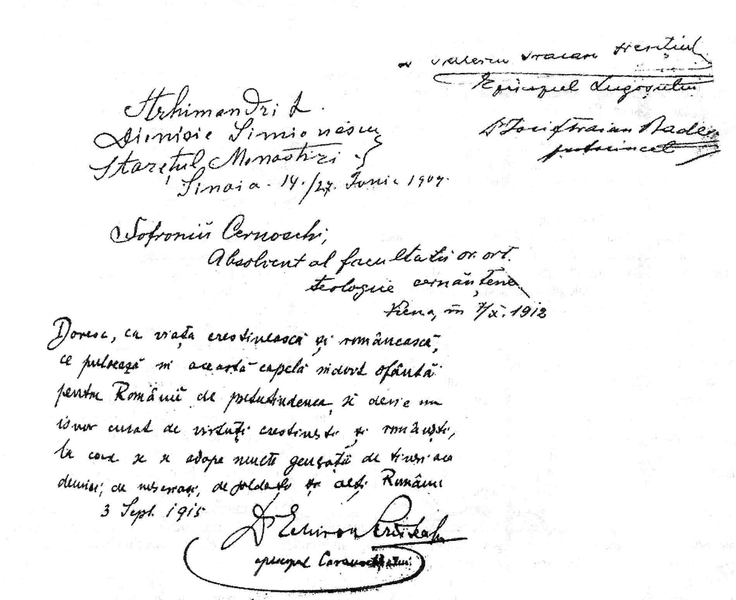 Valeriu Traian Frențiul
Episcopul Lugojului
Dr Iosif Traian Badescu
Arhimandrit
Dionisie Simionescu
Starețul Monastirei
Sinaia. 14/27. Iunie 1907.
Sofroniu Cernoschi,
Absolvent al facultatii or. ort.
teologice cernăuțene
Viena, în 7/X. 1912
Doresc, ca viața creștinească și românească,
ce pulsează in această capelă
pentru Românii de pretutindenea, să devie un
isvor curat de virtuți creștinești și românești,
la care se se adape multe generații de tineri aca
demici, de meseriași, de soldați și alți Români
3 Sept. 1915
Dr Elie Miron Cristea
episcopul Caransebeșului